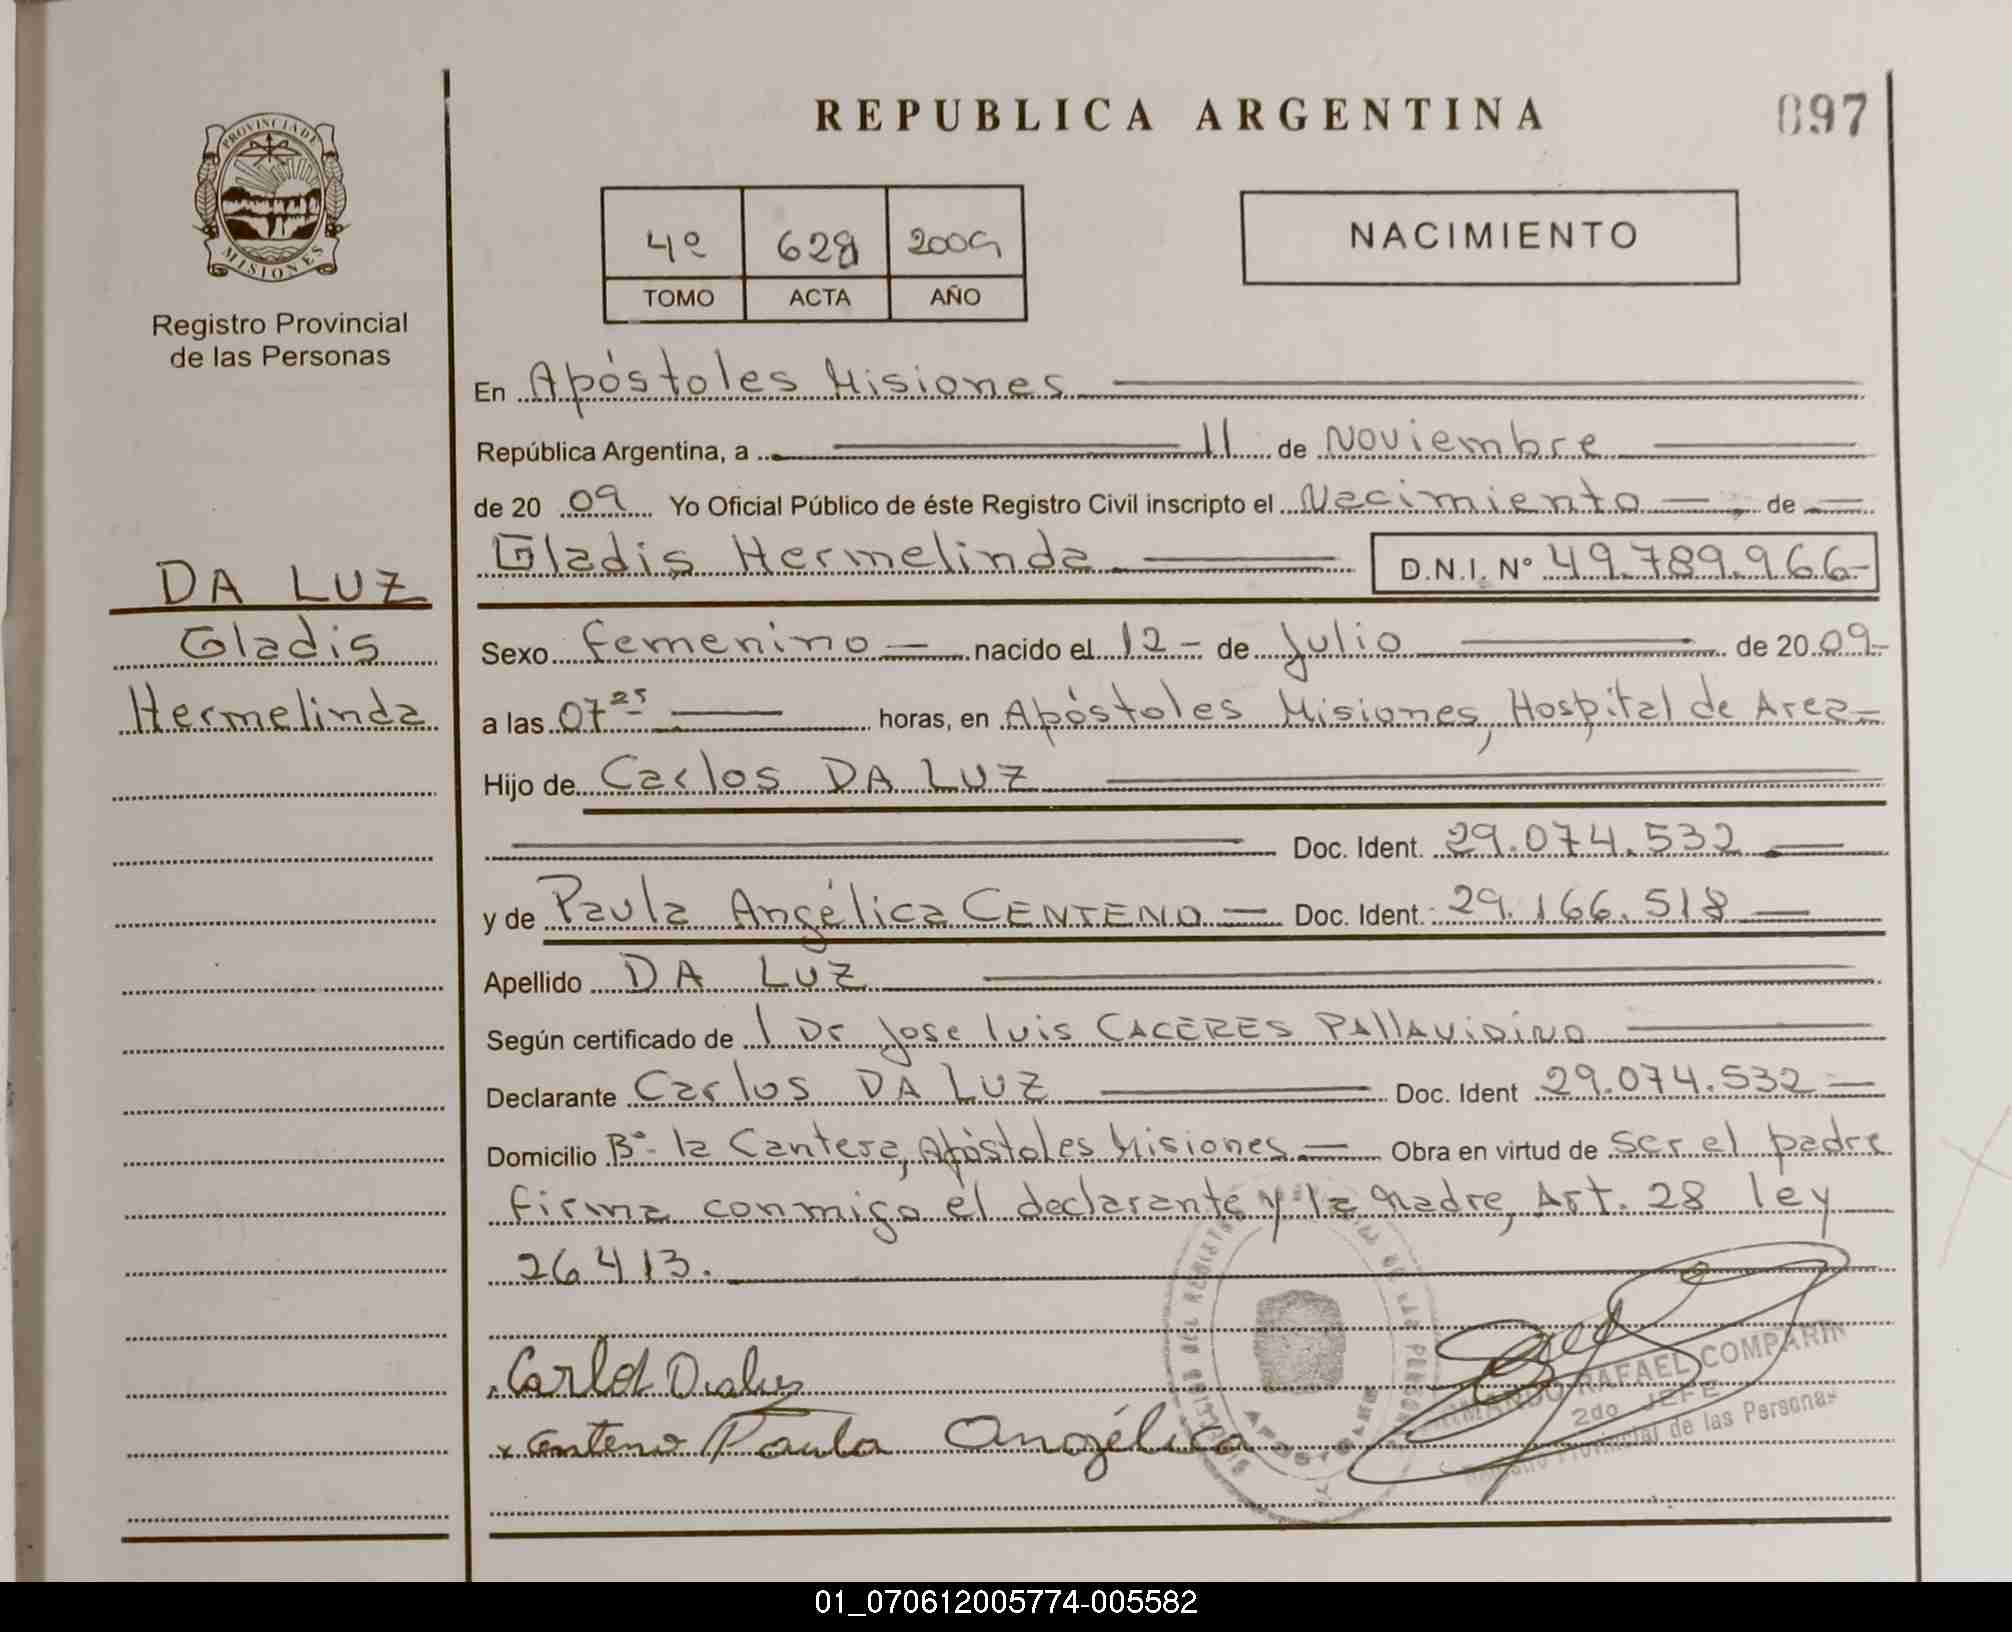 REPUBLICA ARGENTINA
097
PROVINCIA DE
MISIONES
Registro Provincial
de las Personas
4º 628 2009
TOMO ACTA AÑO
NACIMIENTO
En Apóstoles Misiones
República Argentina, a 11 de Noviembre
de 20 09 Yo Oficial Público de éste Registro Civil inscripto el Nacimiento de
Gladis Hermelinda D.N.I. Nº 49.789.966-
DA LUZ
Gladis
Hermelinda
Sexo femenino nacido el 12 - de Julio de 20 09-
a las 07 25 horas, en Apóstoles Misiones, Hospital de Area
Hijo de Carlos DA LUZ
Doc. Ident. 29.074.532
y de Paula Angélica CENTENO Doc. Ident. 29.166.518
Apellido DA LUZ
Según certificado de l Dr Jose Luis CACERES PALLAVIDINO
Declarante Carlos DA LUZ Doc. Ident 29.074.532
Domicilio Bº la Cantera, Apóstoles Misiones Obra en virtud de ser el padre
firma conmigo el declarante y la madre, Art. 28 ley
26413.
Carlos Daluz
x Centeno Paula Angélica
RAFAEL COMPARIN
2do JEFE
Provincial de las Personas
01_070612005774-005582